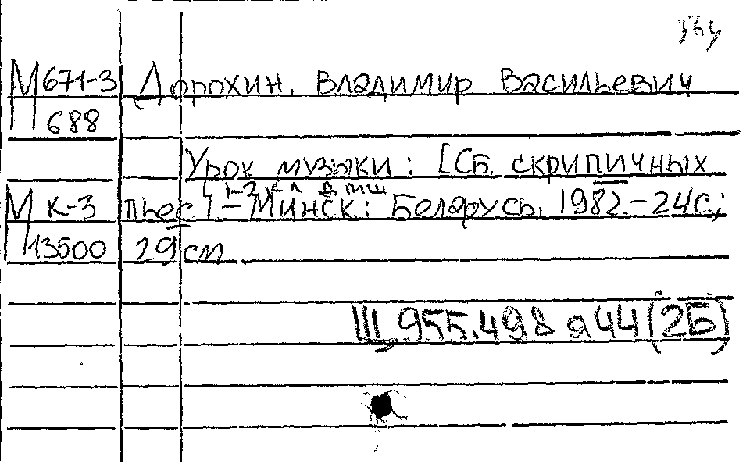 М 671-3 Дорохин, Владимир Васильевич
688
Урок музыки: [Сб. скрипичных
1-3 кл ДМШ
М к-3 пьес] – Минск: Беларусь, 1982.–24с.;
13500 29 см
Щ 955.498 я44(2Б)